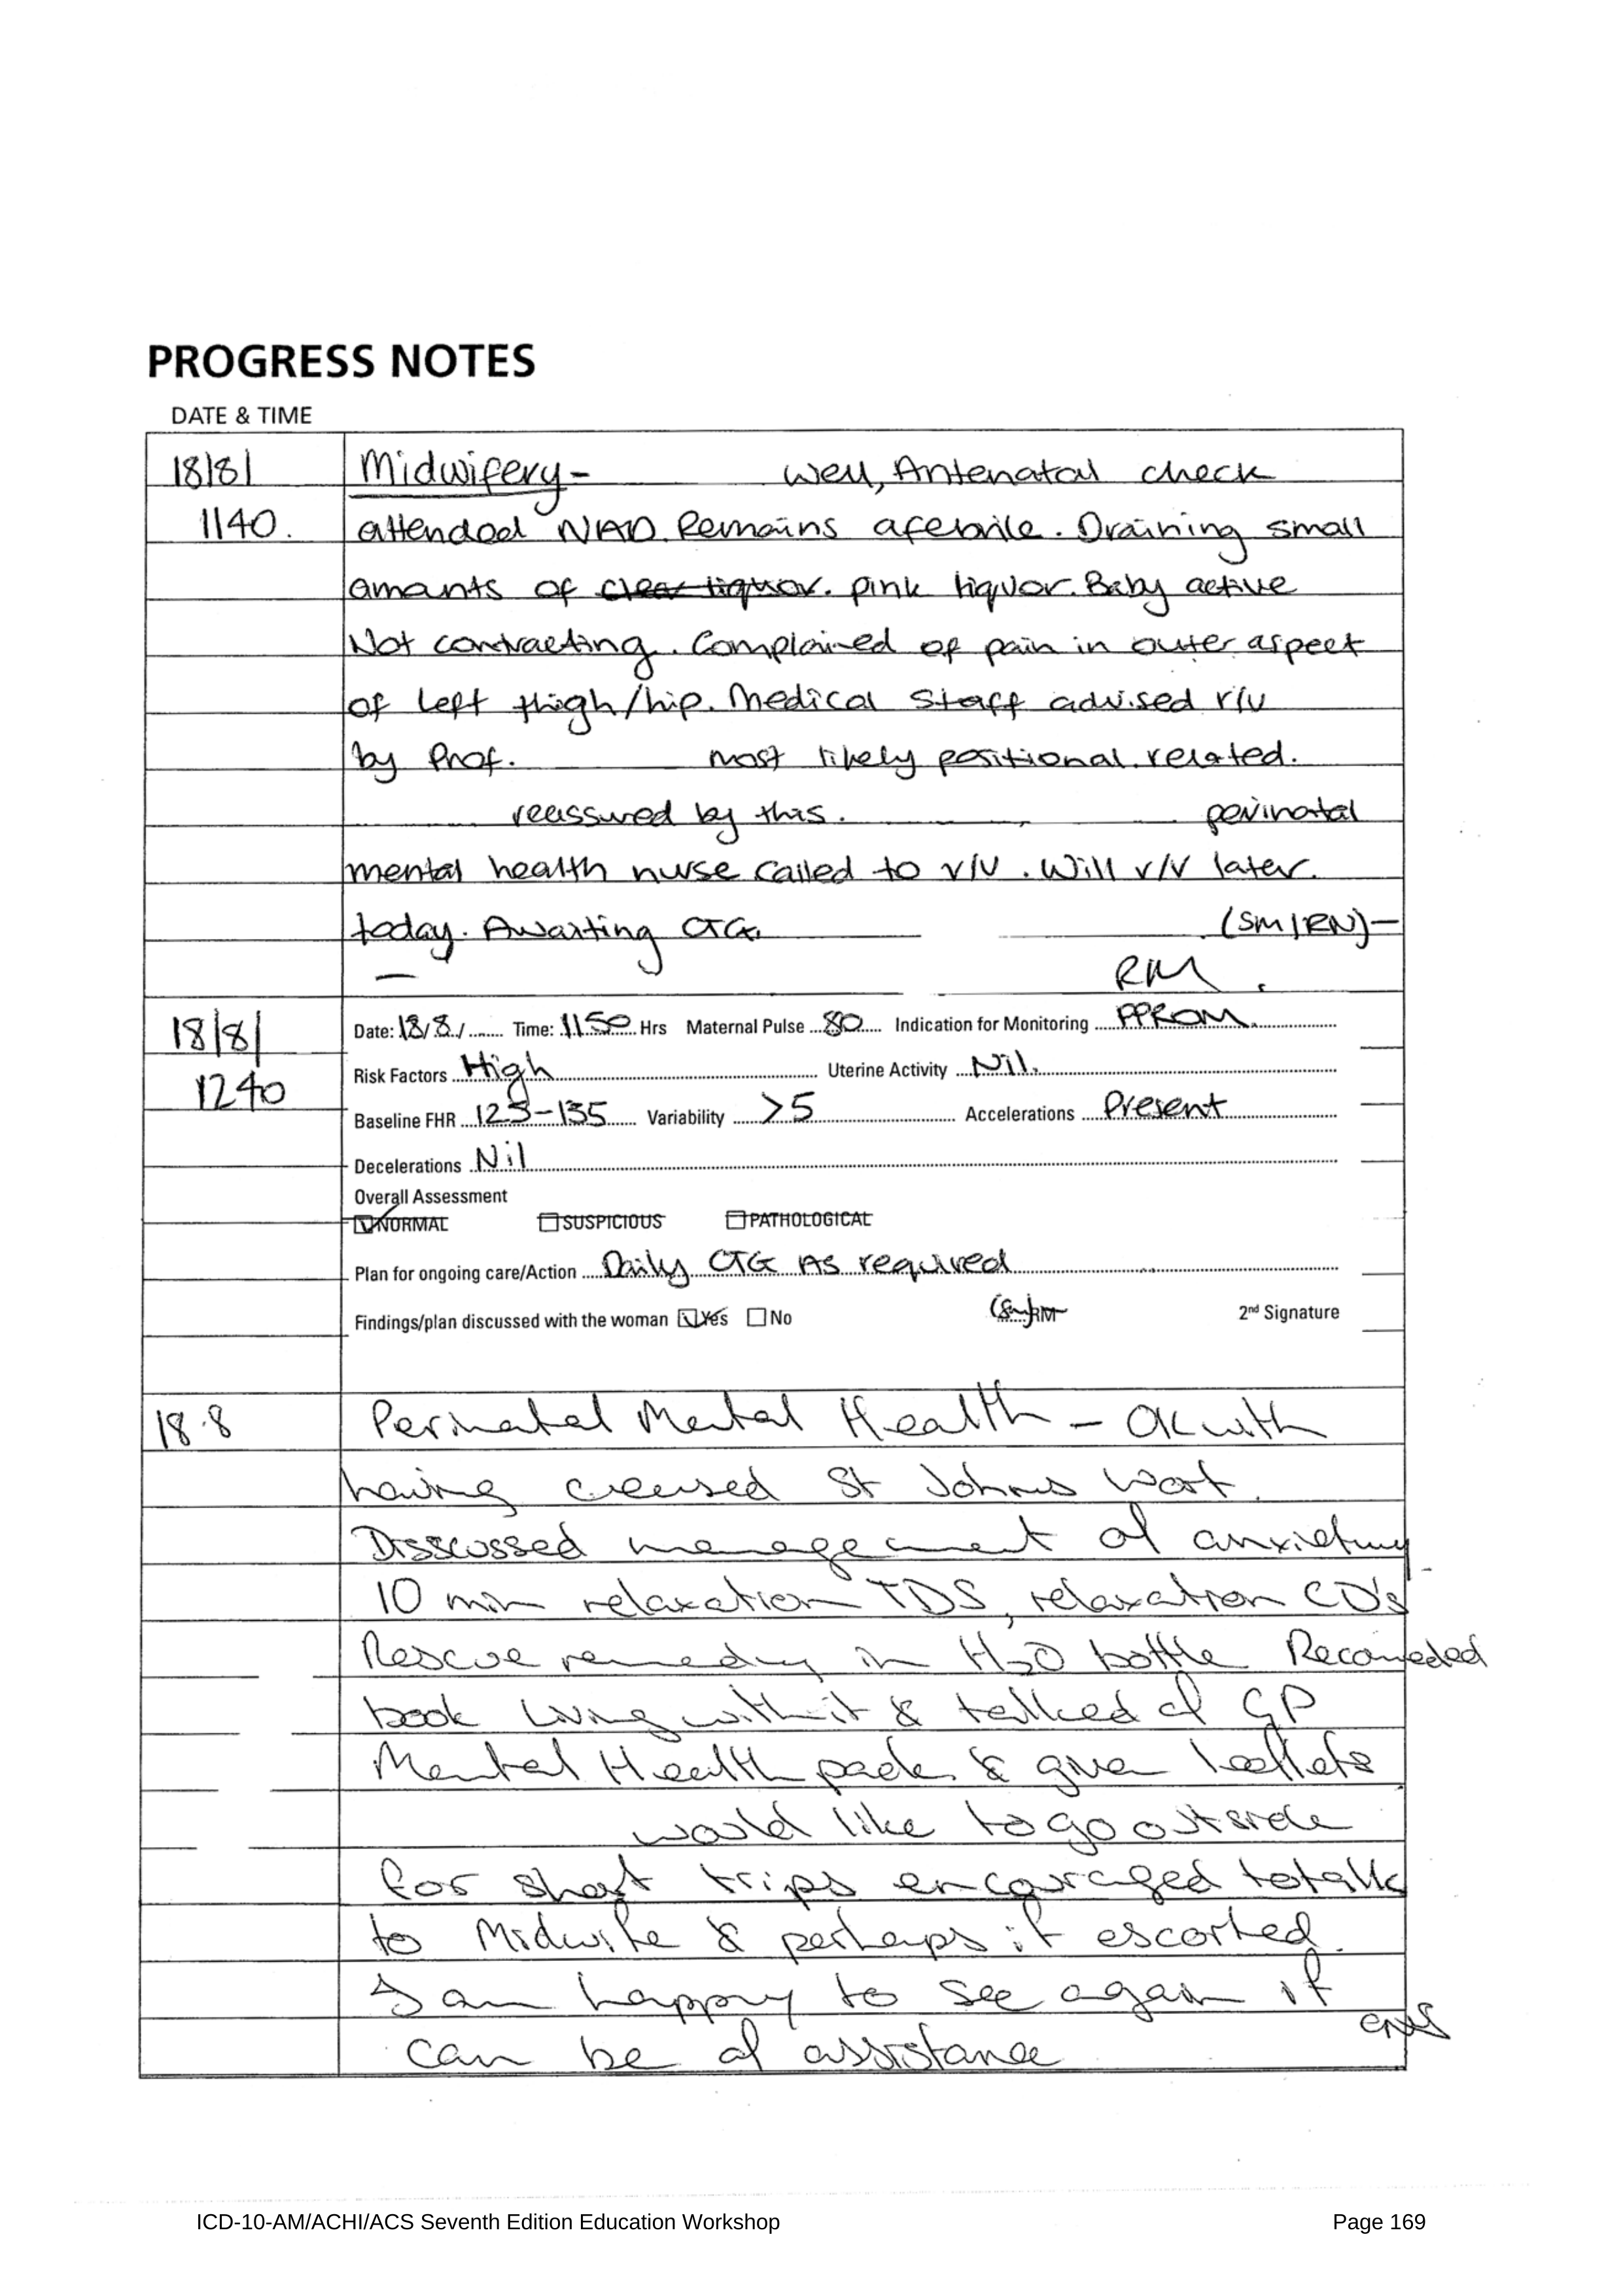 PROGRESS NOTES
DATE & TIME
18/8/ Midwifery - well, Antenatal check
1140. attended NAD. Remains afebrile. Draining small
amounts of clear liquor. pink liquor. Baby active
Not contracting. Complained of pain in outer aspect
of left thigh/hip. Medical Staff advised r/v
by Prof. most likely positional related.
reassured by this. perinatal
mental health nurse called to r/v. Will r/v later.
today. Awaiting CTG. (SM/RN)
RM.
18/8/ Date: 18/8/ Time: 1150 Hrs Maternal Pulse 80 Indication for Monitoring PPROM.
1240 Risk Factors High Uterine Activity Nil.
Baseline FHR 125-135 Variability >5 Accelerations Present
Decelerations Nil
Overall Assessment
NORMAL SUSPICIOUS PATHOLOGICAL
Plan for ongoing care/Action Daily CTG As required
Findings/plan discussed with the woman Yes No RM 2nd Signature
18.8 Perinatal Mental Health - OK with
having ceased St Johns Wort.
Disscussed management of anxiety
10 min relaxation TDS, relaxation CD's
Rescue remedy in H2O bottle Recomeded
book Living with it & talked of GP
Mental Health pack & given leaflets
would like to go outside
for short trips encouraged to talk
to Midwife & perhaps if escorted.
I am happy to see again if
can be of assistance
ICD-10-AM/ACHI/ACS Seventh Edition Education Workshop Page 169